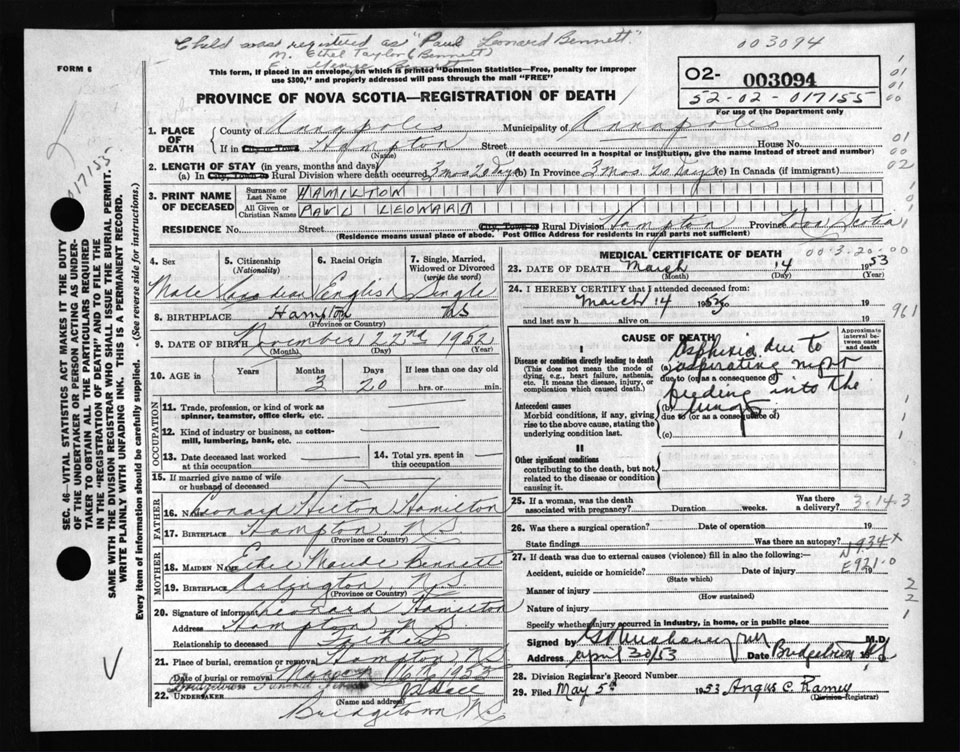 Child was registered as "Paul Leonard Bennett"
M. Ethel Taylor (Bennett)
003094
FORM 6
This form, if placed in an envelope, on which is printed "Dominion Statistics—Free, penalty for improper
use $300," and properly addressed will pass through the mail "FREE"
O2- 003094
52-02-017155
For use of the Department only
PROVINCE OF NOVA SCOTIA—REGISTRATION OF DEATH
017155
1. PLACE OF DEATH
County of Annapolis Municipality of Annapolis
If in City or Town Hampton Street House No.
(Name) (If death occurred in a hospital or institution, give the name instead of street and number)
2. LENGTH OF STAY (in years, months and days)
(a) In City, Town or Rural Division where death occurred 3 mos 20 days (b) In Province 3 Mos. 20 Days (c) In Canada (if immigrant)
3. PRINT NAME OF DECEASED
Surname or Last Name HAMILTON
All Given or Christian Names PAUL LEONARD
RESIDENCE No. Street City, Town or Rural Division Hampton Province Nova Scotia
(Residence means usual place of abode. Post Office Address for residents in rural parts not sufficient)
4. Sex
Male
5. Citizenship (Nationality)
Canadian
6. Racial Origin
English
7. Single, Married, Widowed or Divorced (write the word)
Single
8. BIRTHPLACE Hampton NS
(Province or Country)
9. DATE OF BIRTH November 22nd 1952
(Month) (Day) (Year)
10. AGE Years Months Days If less than one day old
3 20 hrs. or min.
OCCUPATION
11. Trade, profession, or kind of work as spinner, teamster, office clerk, etc.
12. Kind of industry or business, as cotton-mill, lumbering, bank, etc.
13. Date deceased last worked at this occupation
14. Total yrs. spent in this occupation
15. If married give name of wife or husband of deceased
FATHER
16. Name Leonard Hamilton
17. BIRTHPLACE Hampton, N.S.
(Province or Country)
MOTHER
18. MAIDEN NAME Ethel Maude Bennett
19. BIRTHPLACE Arlington, N.S.
(Province or Country)
20. Signature of informant Leonard Hamilton
Address Hampton N.S.
Relationship to deceased Father
21. Place of burial, cremation or removal Hampton NS
1953
22. UNDERTAKER Bridgetown Funeral
(Name and address)
Bridgetown NS
MEDICAL CERTIFICATE OF DEATH
00-3-20-00
23. DATE OF DEATH March 14 1953
(Month) (Day) (Year)
24. I HEREBY CERTIFY that I attended deceased from:
March 14 1953 19
(Month)
and last saw h alive on 19
961
CAUSE OF DEATH
Approximate interval between onset and death
I
Disease or condition directly leading to death
(This does not mean the mode of dying, e.g., heart failure, asthenia, etc. It means the disease, injury, or complication which caused death.)
(a) Asphixia due to
aspirating night
due to (or as a consequence of)
feeding into the
lungs
Antecedent causes
Morbid conditions, if any, giving rise to the above cause, stating the underlying condition last.
(b)
due to (or as a consequence of)
(c)
II
Other significant conditions
contributing to the death, but not related to the disease or condition causing it.
25. If a woman, was the death associated with pregnancy? Duration weeks. Was there a delivery?
3-14-3
26. Was there a surgical operation? Date of operation 19
State findings Was there an autopsy?
N934x
27. If death was due to external causes (violence) fill in also the following:—
Accident, suicide or homicide? Date of injury 19
(State which)
E921-0
Manner of injury
(How sustained)
Nature of injury
Specify whether injury occurred in industry, in home, or in public place
Signed by M.D.
Address April 30/53 Date Bridgetown NS
28. Division Registrar's Record Number
29. Filed May 5th 1953 Angus C. Ramey
(Division Registrar)
SEC. 46—VITAL STATISTICS ACT MAKES IT THE DUTY
OF THE UNDERTAKER OR PERSON ACTING AS UNDER-
TAKER TO OBTAIN ALL THE PARTICULARS REQUIRED
IN THE "REGISTRATION OF DEATH" AND TO FILE THE
SAME WITH THE DIVISION REGISTRAR WHO SHALL ISSUE THE BURIAL PERMIT.
WRITE PLAINLY WITH UNFADING INK. THIS IS A PERMANENT RECORD.
Every item of information should be carefully supplied. (See reverse side for instructions.)